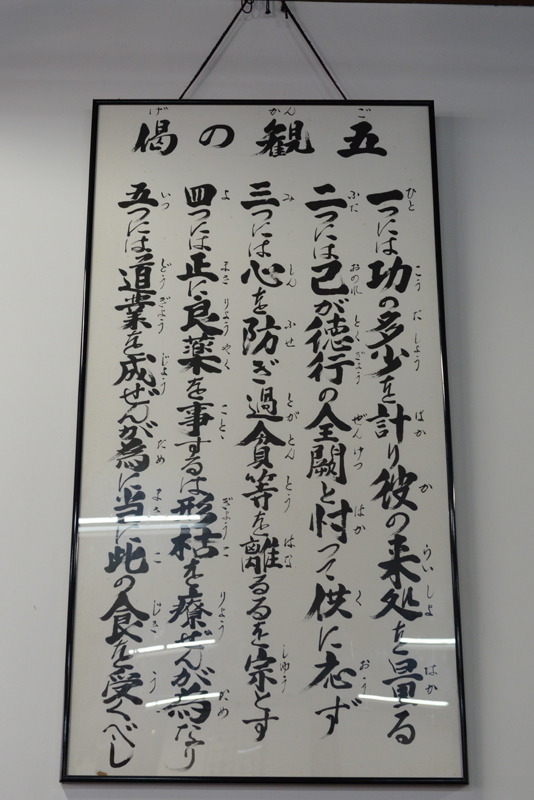 五観の偈
一つには功の多少を計り彼の来処を量る
二つには己が徳行の全闕と忖つて供に応ず
三つには心を防ぎ過貪等を離るるを宗とす
四つには正に良薬を事するは形枯を療ぜんが為なり
五つには道業を成ぜんが為に当に此の食を受くべし